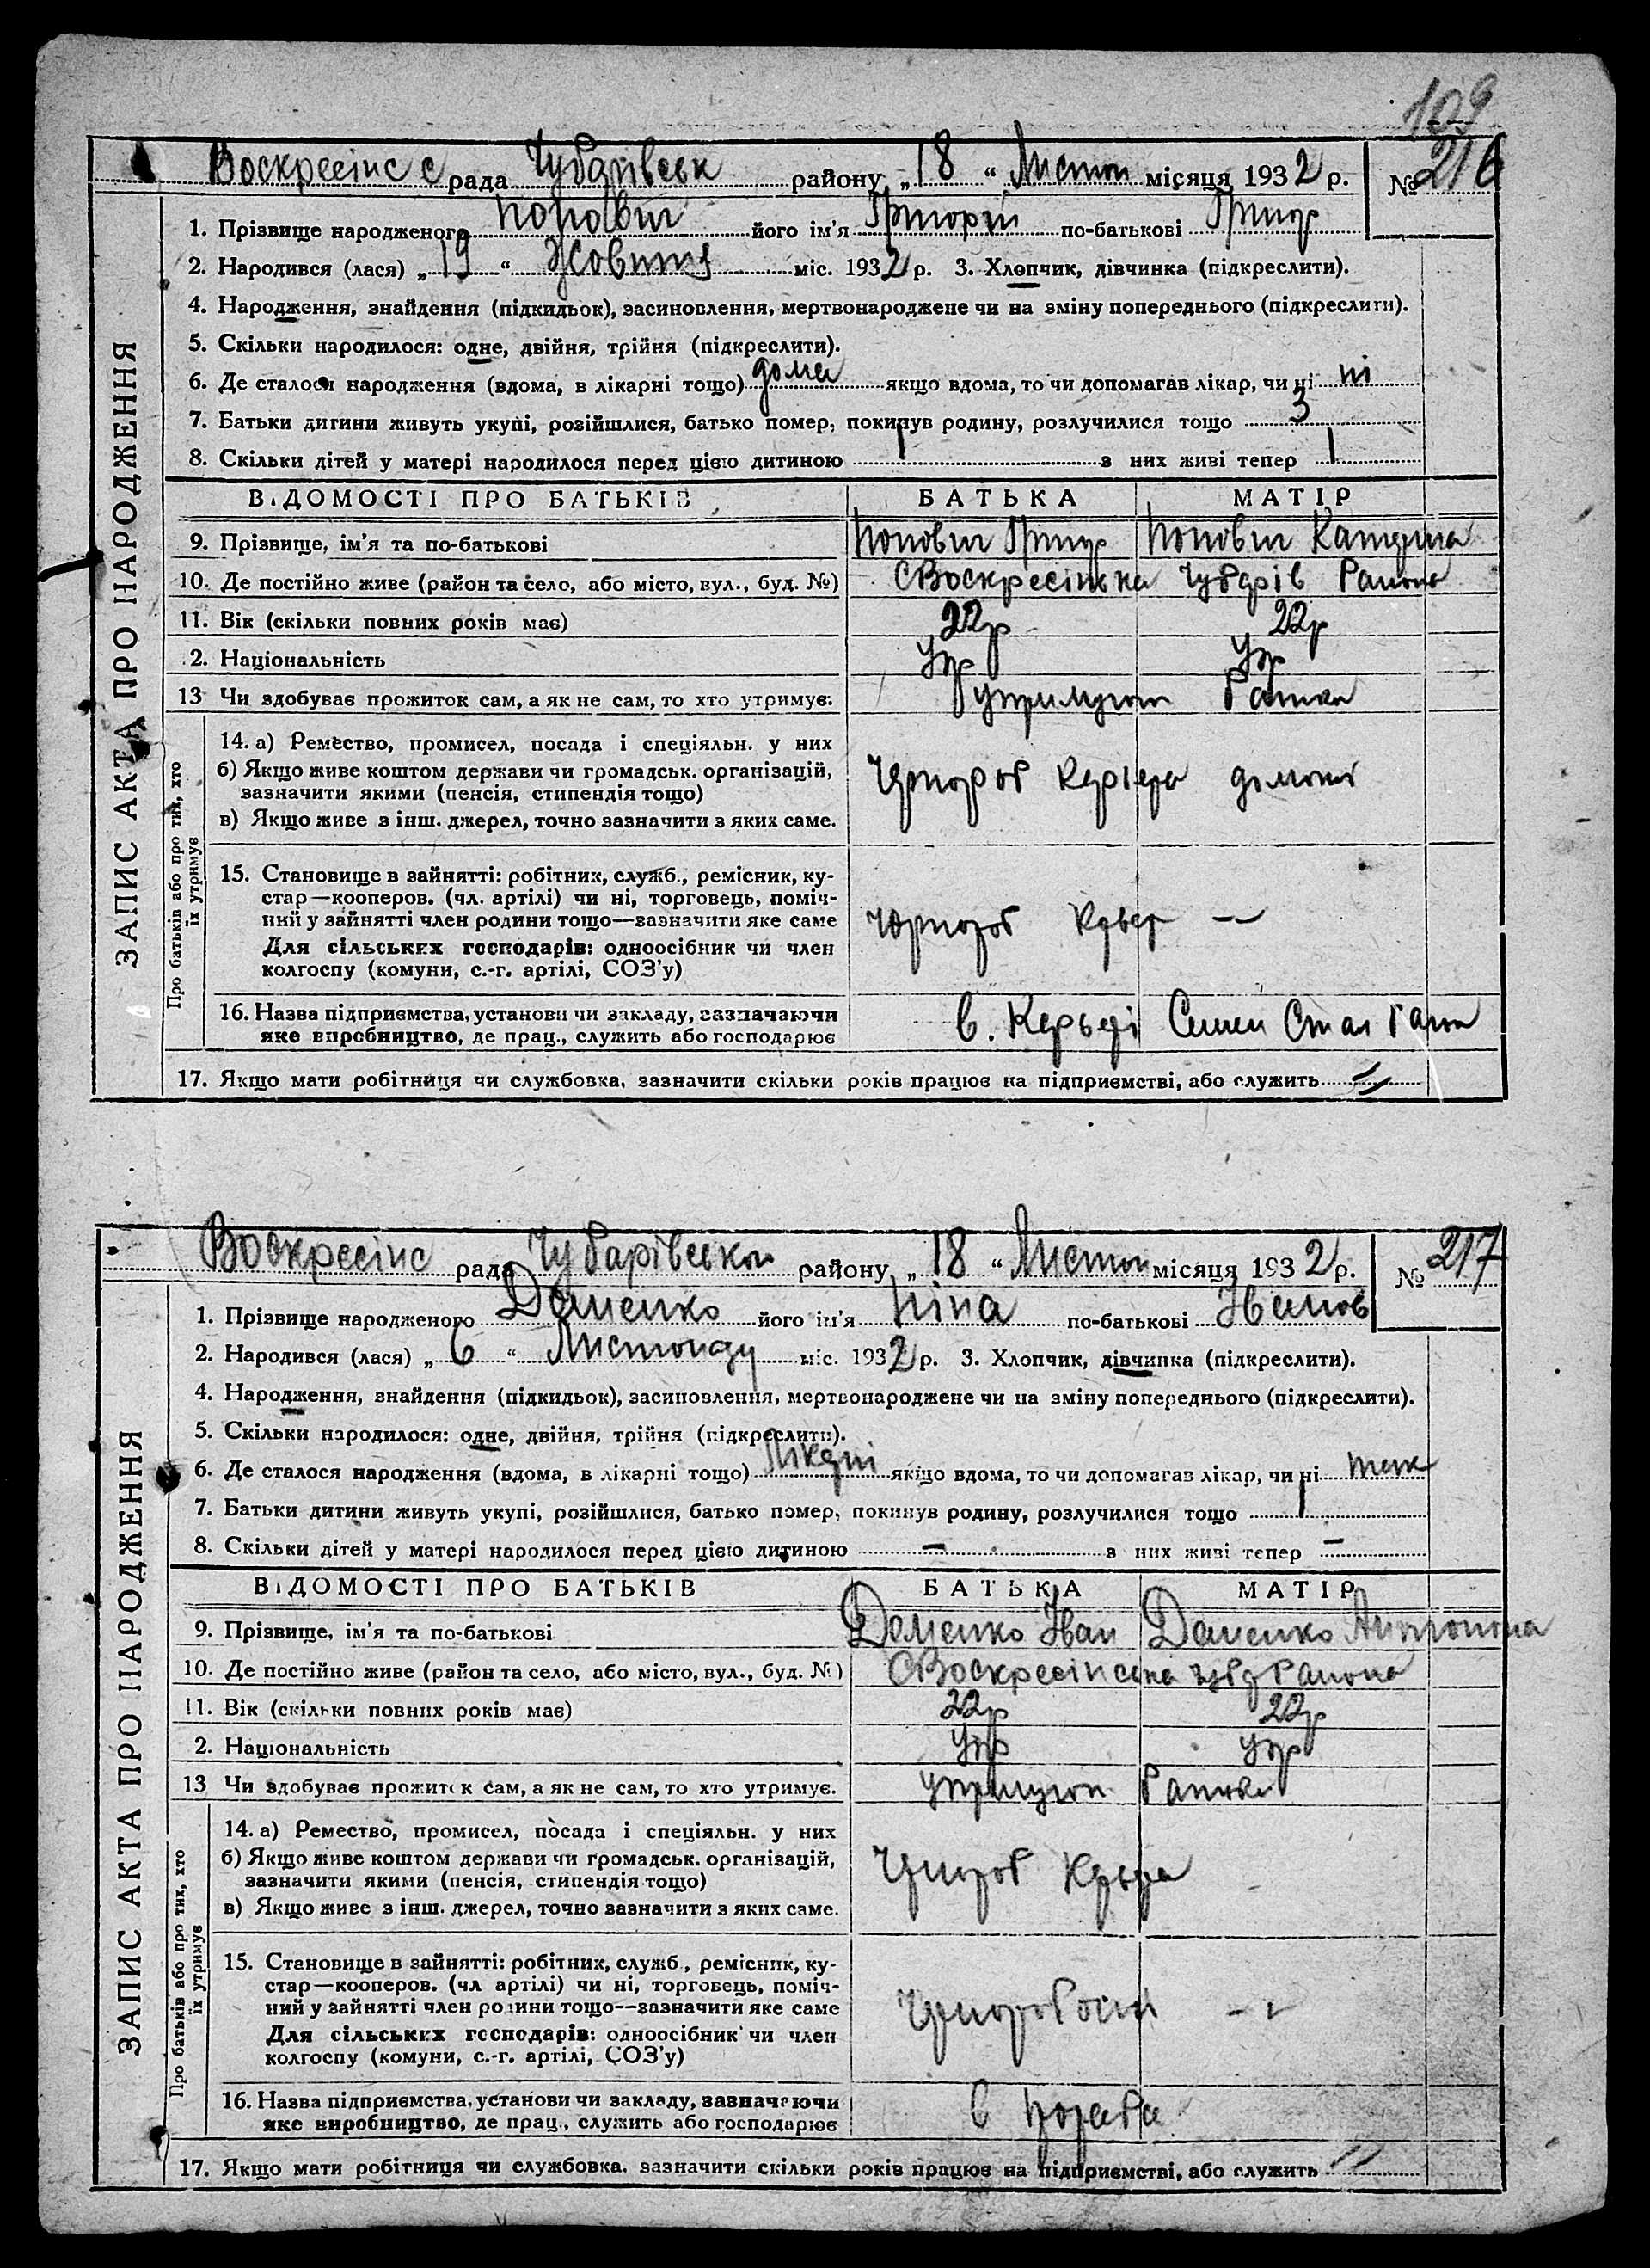 109
Воскресінс с рада Чубарівськ району „18“ Листоп місяця 1932 р. № 216
1. Прізвище народженого Попович його ім'я Григорій по-батькові Григор
2. Народився (лася) „19“ Жовтня міс. 1932 р. 3. Хлопчик, дівчинка (підкреслити).
4. Народження, знайдення (підкидьок), засиновлення, мертвонароджене чи на зміну попереднього (підкреслити).
5. Скільки народилося: одне, двійня, трійня (підкреслити).
6. Де сталося народження (вдома, в лікарні тощо) дома якщо вдома, то чи допомагав лікар, чи ні ні
7. Батьки дитини живуть укупі, розійшлися, батько помер, покинув родину, розлучилися тощо 3
8. Скільки дітей у матері народилося перед цією дитиною 1 з них живі тепер 1
ВІДОМОСТІ ПРО БАТЬКІВ БАТЬКА МАТІР
9. Прізвище, ім'я та по-батькові Попович Григор Попович Катерина
10. Де постійно живе (район та село, або місто, вул., буд. №) С Воскресінька Чубарів Района
11. Вік (скільки повних років має) 22р 22р
2. Національність Укр Укр
13 Чи здобуває прожиток сам, а як не сам, то хто утримує. утримують
14. а) Ремество, промисел, посада і спеціяльн. у них
б) Якщо живе коштом держави чи громадськ. організацій,
зазначити якими (пенсія, стипендія тощо)
Чорнороб Карьера
в) Якщо живе з інш. джерел, точно зазначити з яких саме.
15. Становище в зайнятті: робітник, служб., ремісник, ку-
стар—кооперов. (чл. артілі) чи ні, торговець, поміч-
ний у зайнятті член родини тощо—зазначити яке саме
Чорнороб —
Для сільських господарів: одноосібник чи член
колгоспу (комуни, с.-г. артілі, СОЗ'у)
16. Назва підприємства, установи чи закладу, зазначаючи
яке виробництво, де прац., служить або господарює
в. Карьері
17. Якщо мати робітниця чи службовка, зазначити скільки років працює на підприємстві, або служить //
ЗАПИС АКТА ПРО НАРОДЖЕННЯ
Про батьків або про тих, хто
їх утримує
Воскресінс рада Чубарівська району „18“ Листоп місяця 1932 р. № 217
1. Прізвище народженого Доценко його ім'я Ніна по-батькові Іванов
2. Народився (лася) „6“ Листопаду міс. 1932 р. 3. Хлопчик, дівчинка (підкреслити).
4. Народження, знайдення (підкидьок), засиновлення, мертвонароджене чи на зміну попереднього (підкреслити).
5. Скільки народилося: одне, двійня, трійня (підкреслити).
6. Де сталося народження (вдома, в лікарні тощо) Лікарні якщо вдома, то чи допомагав лікар, чи ні так
7. Батьки дитини живуть укупі, розійшлися, батько помер, покинув родину, розлучилися тощо 1
8. Скільки дітей у матері народилося перед цією дитиною — з них живі тепер —
ВІДОМОСТІ ПРО БАТЬКІВ БАТЬКА МАТІР
9. Прізвище, ім'я та по-батькові Доценко Іван Доценко
10. Де постійно живе (район та село, або місто, вул., буд. №) С Воскресінська Чубар Района
11. Вік (скільки повних років має) 22р 22р
2. Національність Укр Укр
13 Чи здобуває прожиток сам, а як не сам, то хто утримує. утримують
14. а) Ремество, промисел, посада і спеціяльн. у них
б) Якщо живе коштом держави чи громадськ. організацій,
зазначити якими (пенсія, стипендія тощо)
Чорнороб Карьера
в) Якщо живе з інш. джерел, точно зазначити з яких саме.
15. Становище в зайнятті: робітник, служб., ремісник, ку-
стар—кооперов. (чл артілі) чи ні, торговець, поміч-
ний у зайнятті член родини тощо—зазначити яке саме
Для сільських господарів: одноосібник чи член
колгоспу (комуни, с.-г. артілі, СОЗ'у)
16. Назва підприємства, установи чи закладу, зазначаючи
яке виробництво, де прац., служить або господарює
17. Якщо мати робітниця чи службовка, зазначити скільки років працює на підприємстві, або служить //
ЗАПИС АКТА ПРО НАРОДЖЕННЯ
Про батьків або про тих, хто
їх утримує